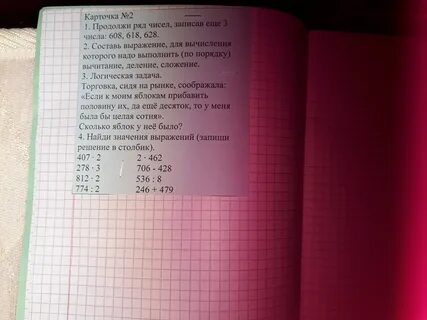 Карточка №2
1. Продолжи ряд чисел, записав еще 3
числа: 608, 618, 628.
2. Составь выражение, для вычисления
которого надо выполнить (по порядку)
вычитание, деление, сложение.
3. Логическая задача.
Торговка, сидя на рынке, соображала:
«Если к моим яблокам прибавить
половину их, да ещё десяток, то у меня
была бы целая сотня».
Сколько яблок у неё было?
4. Найди значения выражений (запиши
решение в столбик).
407 · 2 2 · 462
278 · 3 706 - 428
812 · 2 536 : 8
774 : 2 246 + 479